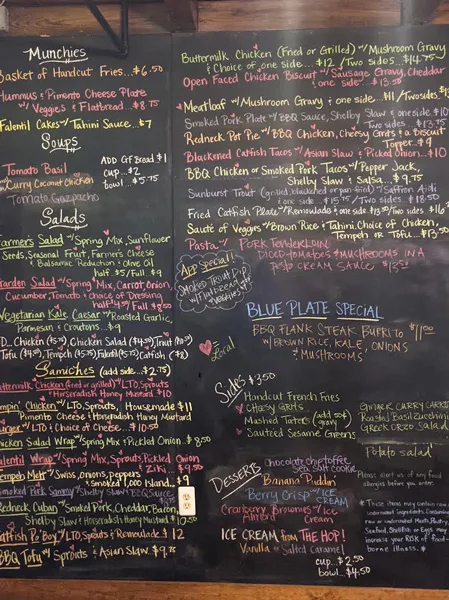 Munchies
Basket of Handcut Fries...$6.50
Hummus & Pimento Cheese Plate
w/ Veggies & Flatbread...$8.75
Falentil Cakes w/ Tahini Sauce...$7
Soups
Tomato Basil
Curry Coconut Chicken
Tomato Gazpacho
ADD GF Bread $1
cup...$2
bowl...$5.75
Salads
Farmers Salad w/ Spring Mix, Sunflower
Seeds, Seasonal Fruit, Farmer's Cheese
& Balsamic Reduction & Olive Oil
half $5/Full...$9
Garden Salad w/ Spring Mix, Carrot, Onion,
Cucumber, Tomato & Choice of Dressing
Vegetarian Kale Caesar w/ Roasted Garlic,
Parmesan & Croutons...$9
Chicken Salad
Tempeh
Catfish
Samiches (add side...$2.75)
Buttermilk Chicken (fried or grilled) w/ LTO, Sprouts
& Horseradish Honey Mustard $10
Chicken w/ LTO, Sprouts, Housemade $11
Pimento Cheese & Horseradish Honey Mustard
w/ LTO & Choice of Cheese...$10.50
Chicken Salad Wrap w/ Spring Mix & Pickled Onion...$8.50
Falentil Wrap w/ Spring Mix, Sprouts, Pickled Onion
& Ziki...$9.50
Tempeh Melt w/ Swiss, onions, Peppers
& Smoked 1,000 Island...$9
Smoked Pork Sammy w/ Shelby Slaw & BBQ Sauce
Redneck Cuban w/ Smoked Pork, Cheddar, Bacon,
Shelby Slaw & Horseradish Honey Mustard $10.50
Catfish Po'Boy w/ LTO, Sprouts & Remoulade $12
BBQ Tofu w/ Sprouts & Asian Slaw...$9.75
Buttermilk Chicken (Fried or Grilled) w/ Mushroom Gravy
& Choice of one side...$12 / Two sides...$14.75
Open Faced Chicken Biscuit w/ Sausage Gravy, Cheddar
& one side...$13.50
Meatloaf w/ Mushroom Gravy & one side...$11/Two sides
Smoked Pork Plate w/ BBQ Sauce, Shelby Slaw & one side $10.50
Two sides...$13.75
Redneck Pot Pie w/ BBQ Chicken, Cheesy Grits & a Biscuit
Topper...$9
Blackened Catfish Tacos w/ Asian Slaw & Picked Onion...$10
BBQ Chicken or Smoked Pork Tacos w/ Pepper Jack,
Shelby Slaw & Salsa...$9.75
Sunburst Trout (grilled, blackened or pan fried) w/ Saffron Aioli
& one side...$15.75 / Two sides...$18.50
Fried Catfish Plate w/ Remoulade & one side $13.50/Two sides $16
Sauté of Veggies w/ Brown Rice & Tahini, Choice of Chicken,
Tempeh or Tofu...$13.50
Pasta w/ Pork Tenderloin
Diced tomatoes & mushrooms in a
pesto cream sauce
App Special!
Smoked Trout Dip
w/ Flatbread &
Veggies
Local
BLUE PLATE SPECIAL
BBQ FLANK STEAK BURRITO $11.00
w/ BROWN RICE, KALE, ONIONS
& MUSHROOMS
Sides $3.50
Handcut French Fries
Cheesy Grits
Mashed Taters (add 50¢ gravy)
Sautéed Sesame Greens
Ginger Curry Carrots
Roasted Basil Zucchini
Greek Orzo Salad
Potato salad
Desserts
Chocolate chip toffee
Sea Salt cookie
Banana Puddin
Berry Crisp w/ ICE CREAM
Cranberry Almond Brownies w/ Ice Cream
ICE CREAM FROM THE HOP!
Vanilla or Salted Caramel
cup...$2.50
bowl...$4.50
Please alert us of any food
allergies before you order.
* These items may contain raw or
undercooked ingredients. Consuming
raw or undercooked Meats, Poultry,
Seafood, Shellfish or Eggs may
increase your RISK of food-
borne illness. *